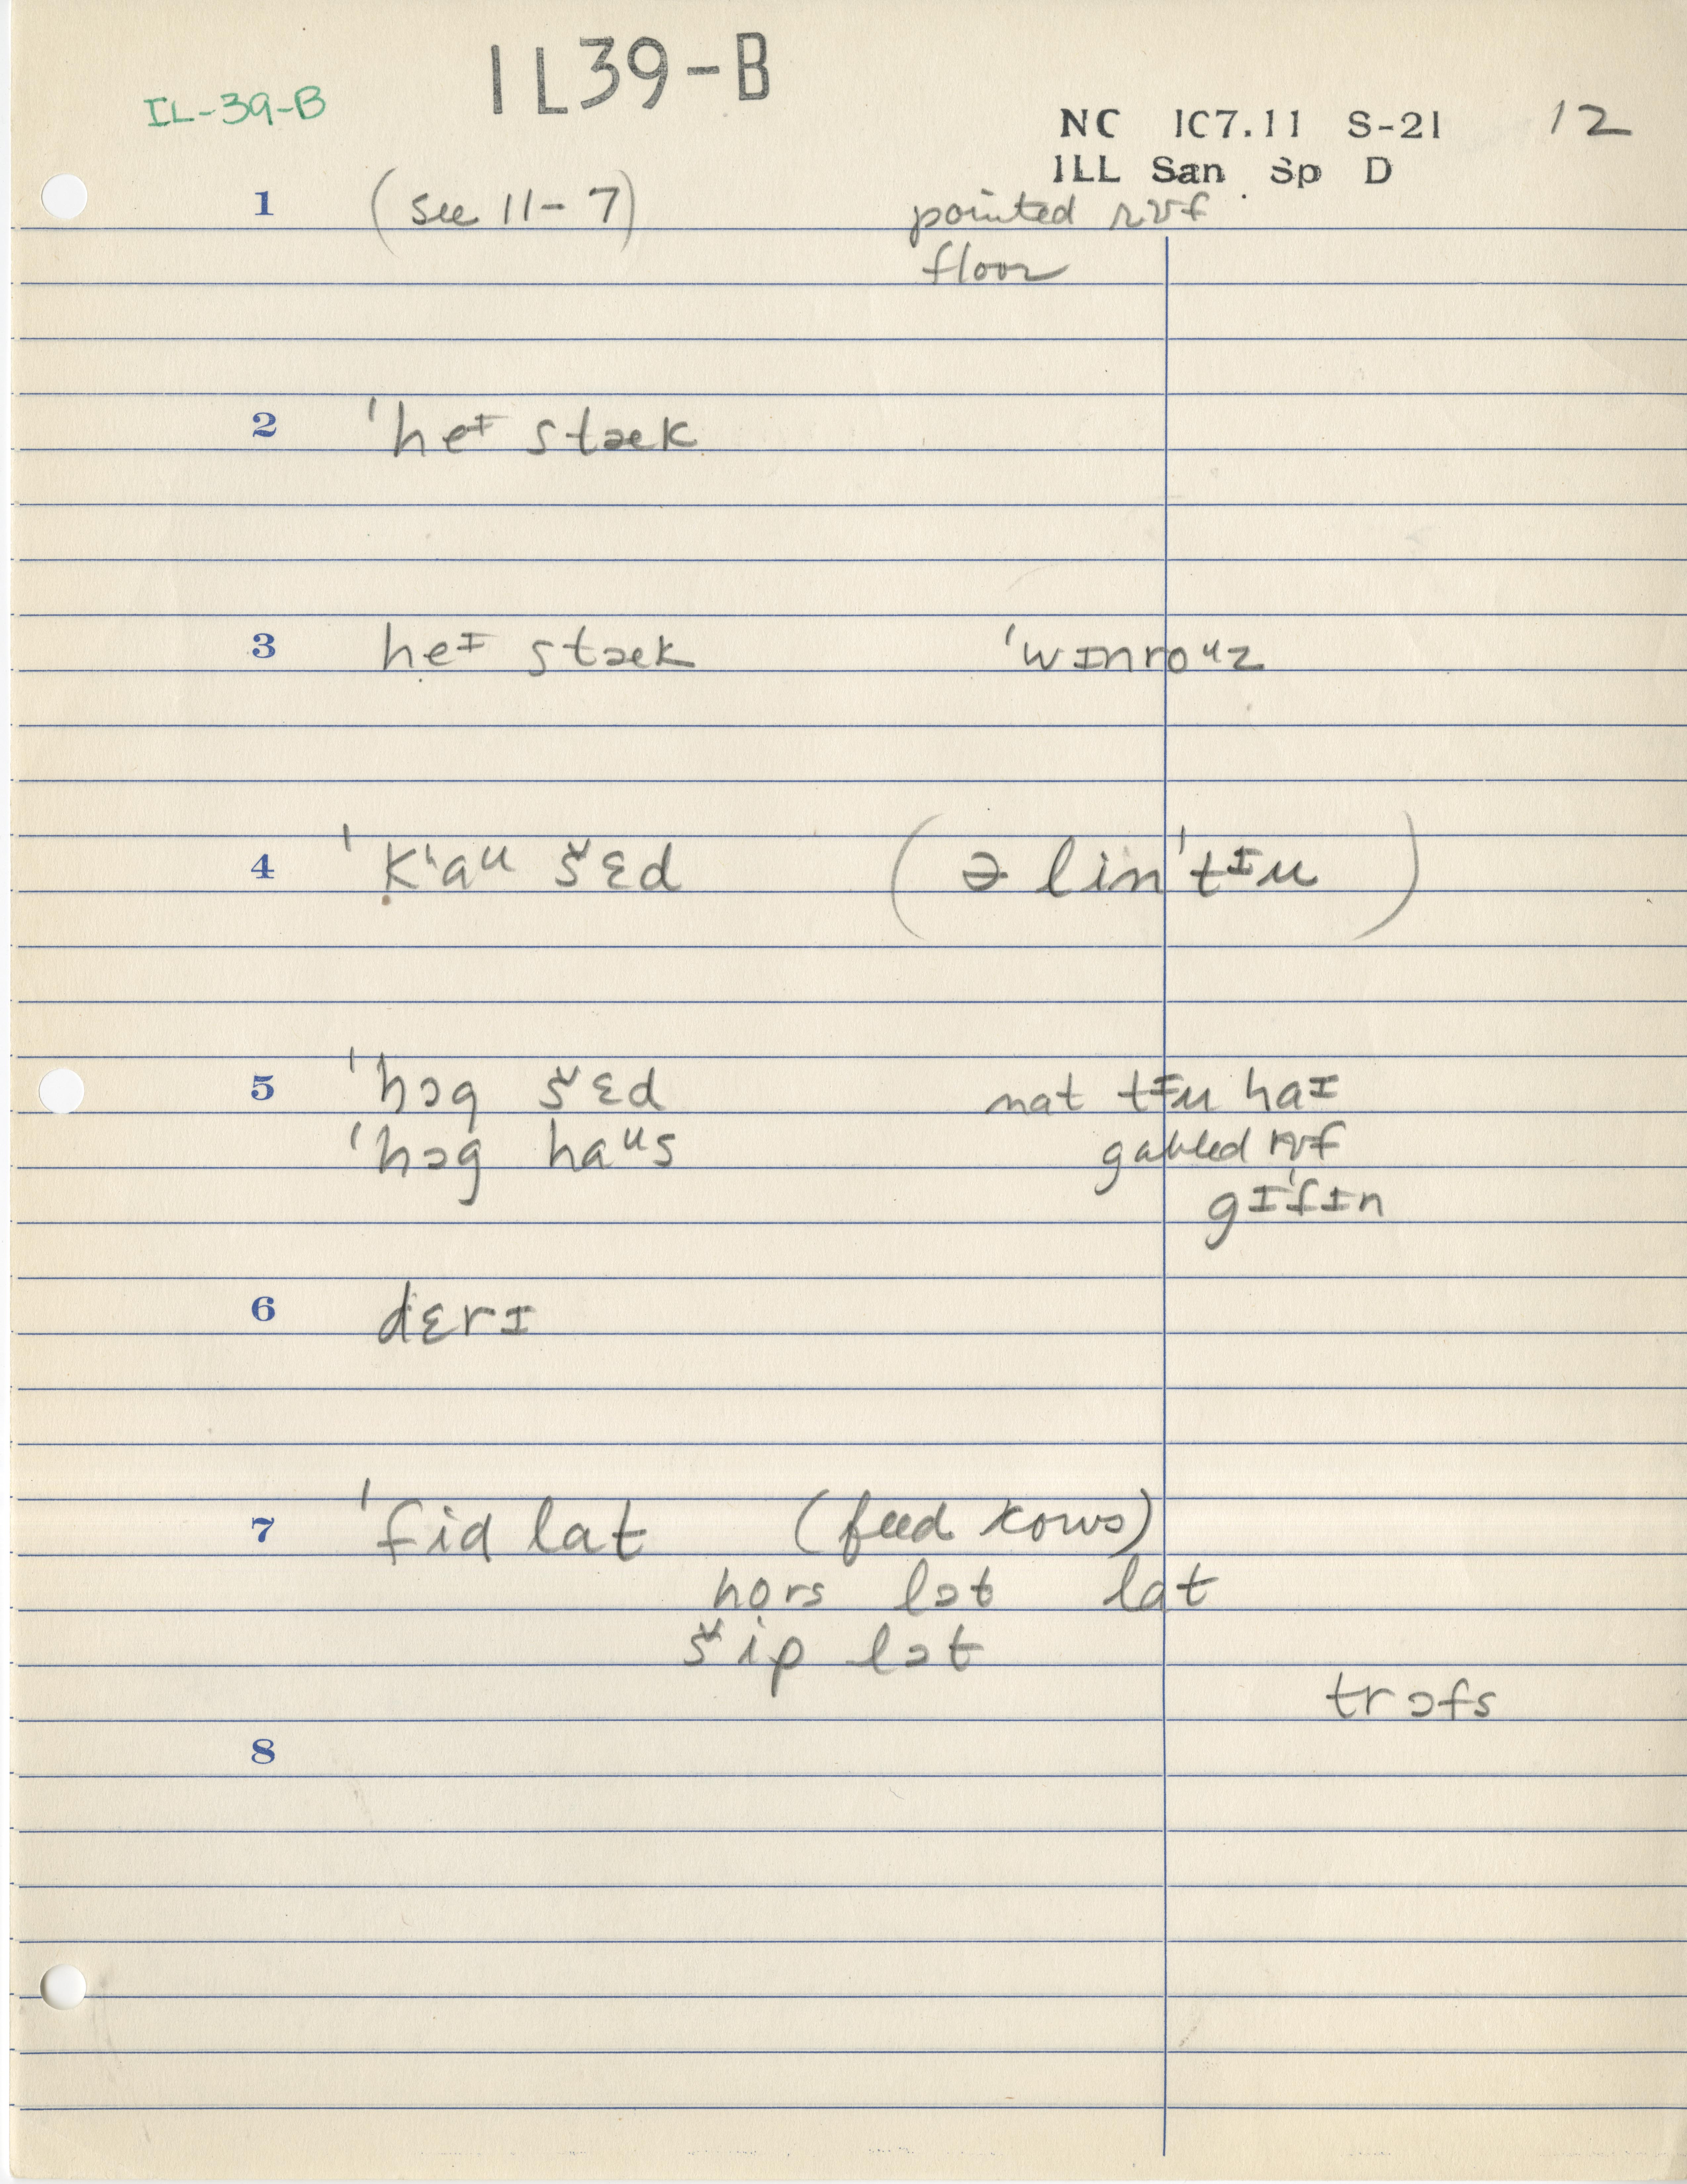 IL39-B
IL-39-B
NC 1C7.11 S-21 12
ILL San Sp D
1 (see 11-7) pointed rʊf
floor
2 ˈheᶦ stæk
3 heᶦ stæk ˈwɪnroᵘz
4 ˈkʻaᵘ šɛd (ə linˈtᶦu)
5 ˈhɔg šɛd nat tᶦu haɪ
ˈhɔg haᵘs gabled rʊf
gɪˈfɪn
6 dɛrɪ
7 ˈfid lat (feed kows)
hors lɔt lat
šip lɔt
trɔfs
8